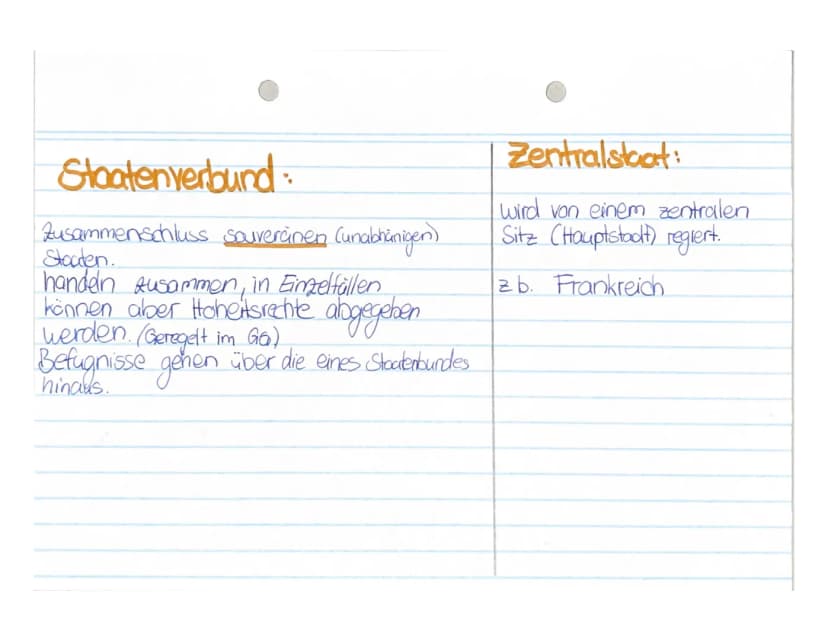 Staatenverbund:
Zusammenschluss souveränen (unabhänigen)
Staaten.
handeln zusammen, in Einzelfällen
können aber Hoheitsrechte abgegeben
werden. (Geregelt im GG)
Befugnisse gehen über die eines Staatenbundes
hinaus.
Zentralstaat:
wird von einem zentralen
Sitz (Hauptstadt) regiert.
z b. Frankreich